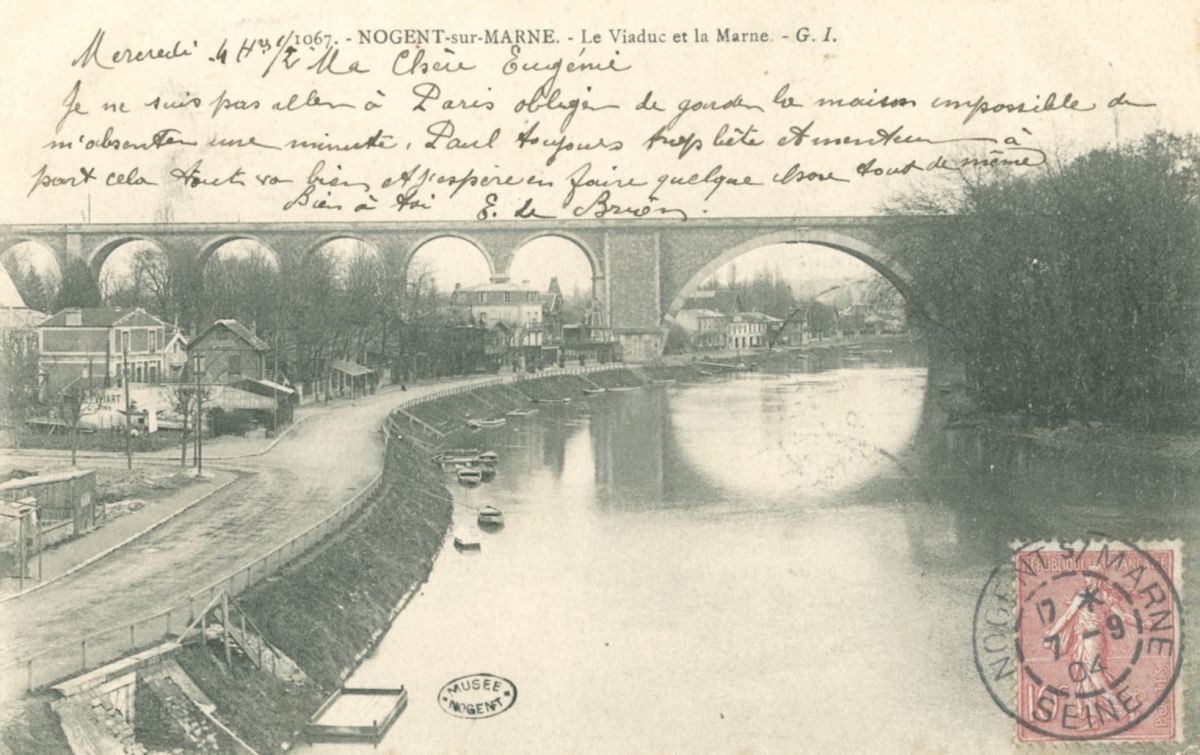 1067. - NOGENT-sur-MARNE. - Le Viaduc et la Marne. - G. I.
Mercredi 4 Hres 1/2 Ma Chère Eugénie
Je ne suis pas allée à Paris obligée de garder la maison impossible de
m'absenter une minute, Paul toujours très bête et menteur à
part cela tout va bien et j'espère en faire quelque chose tout de même
Bien à toi E. de
MUSEE
NOGENT
NOGENT S/ MARNE
REPUBLIQUE FRANÇAISE
17
7 - 9
04
SEINE
10
POSTES